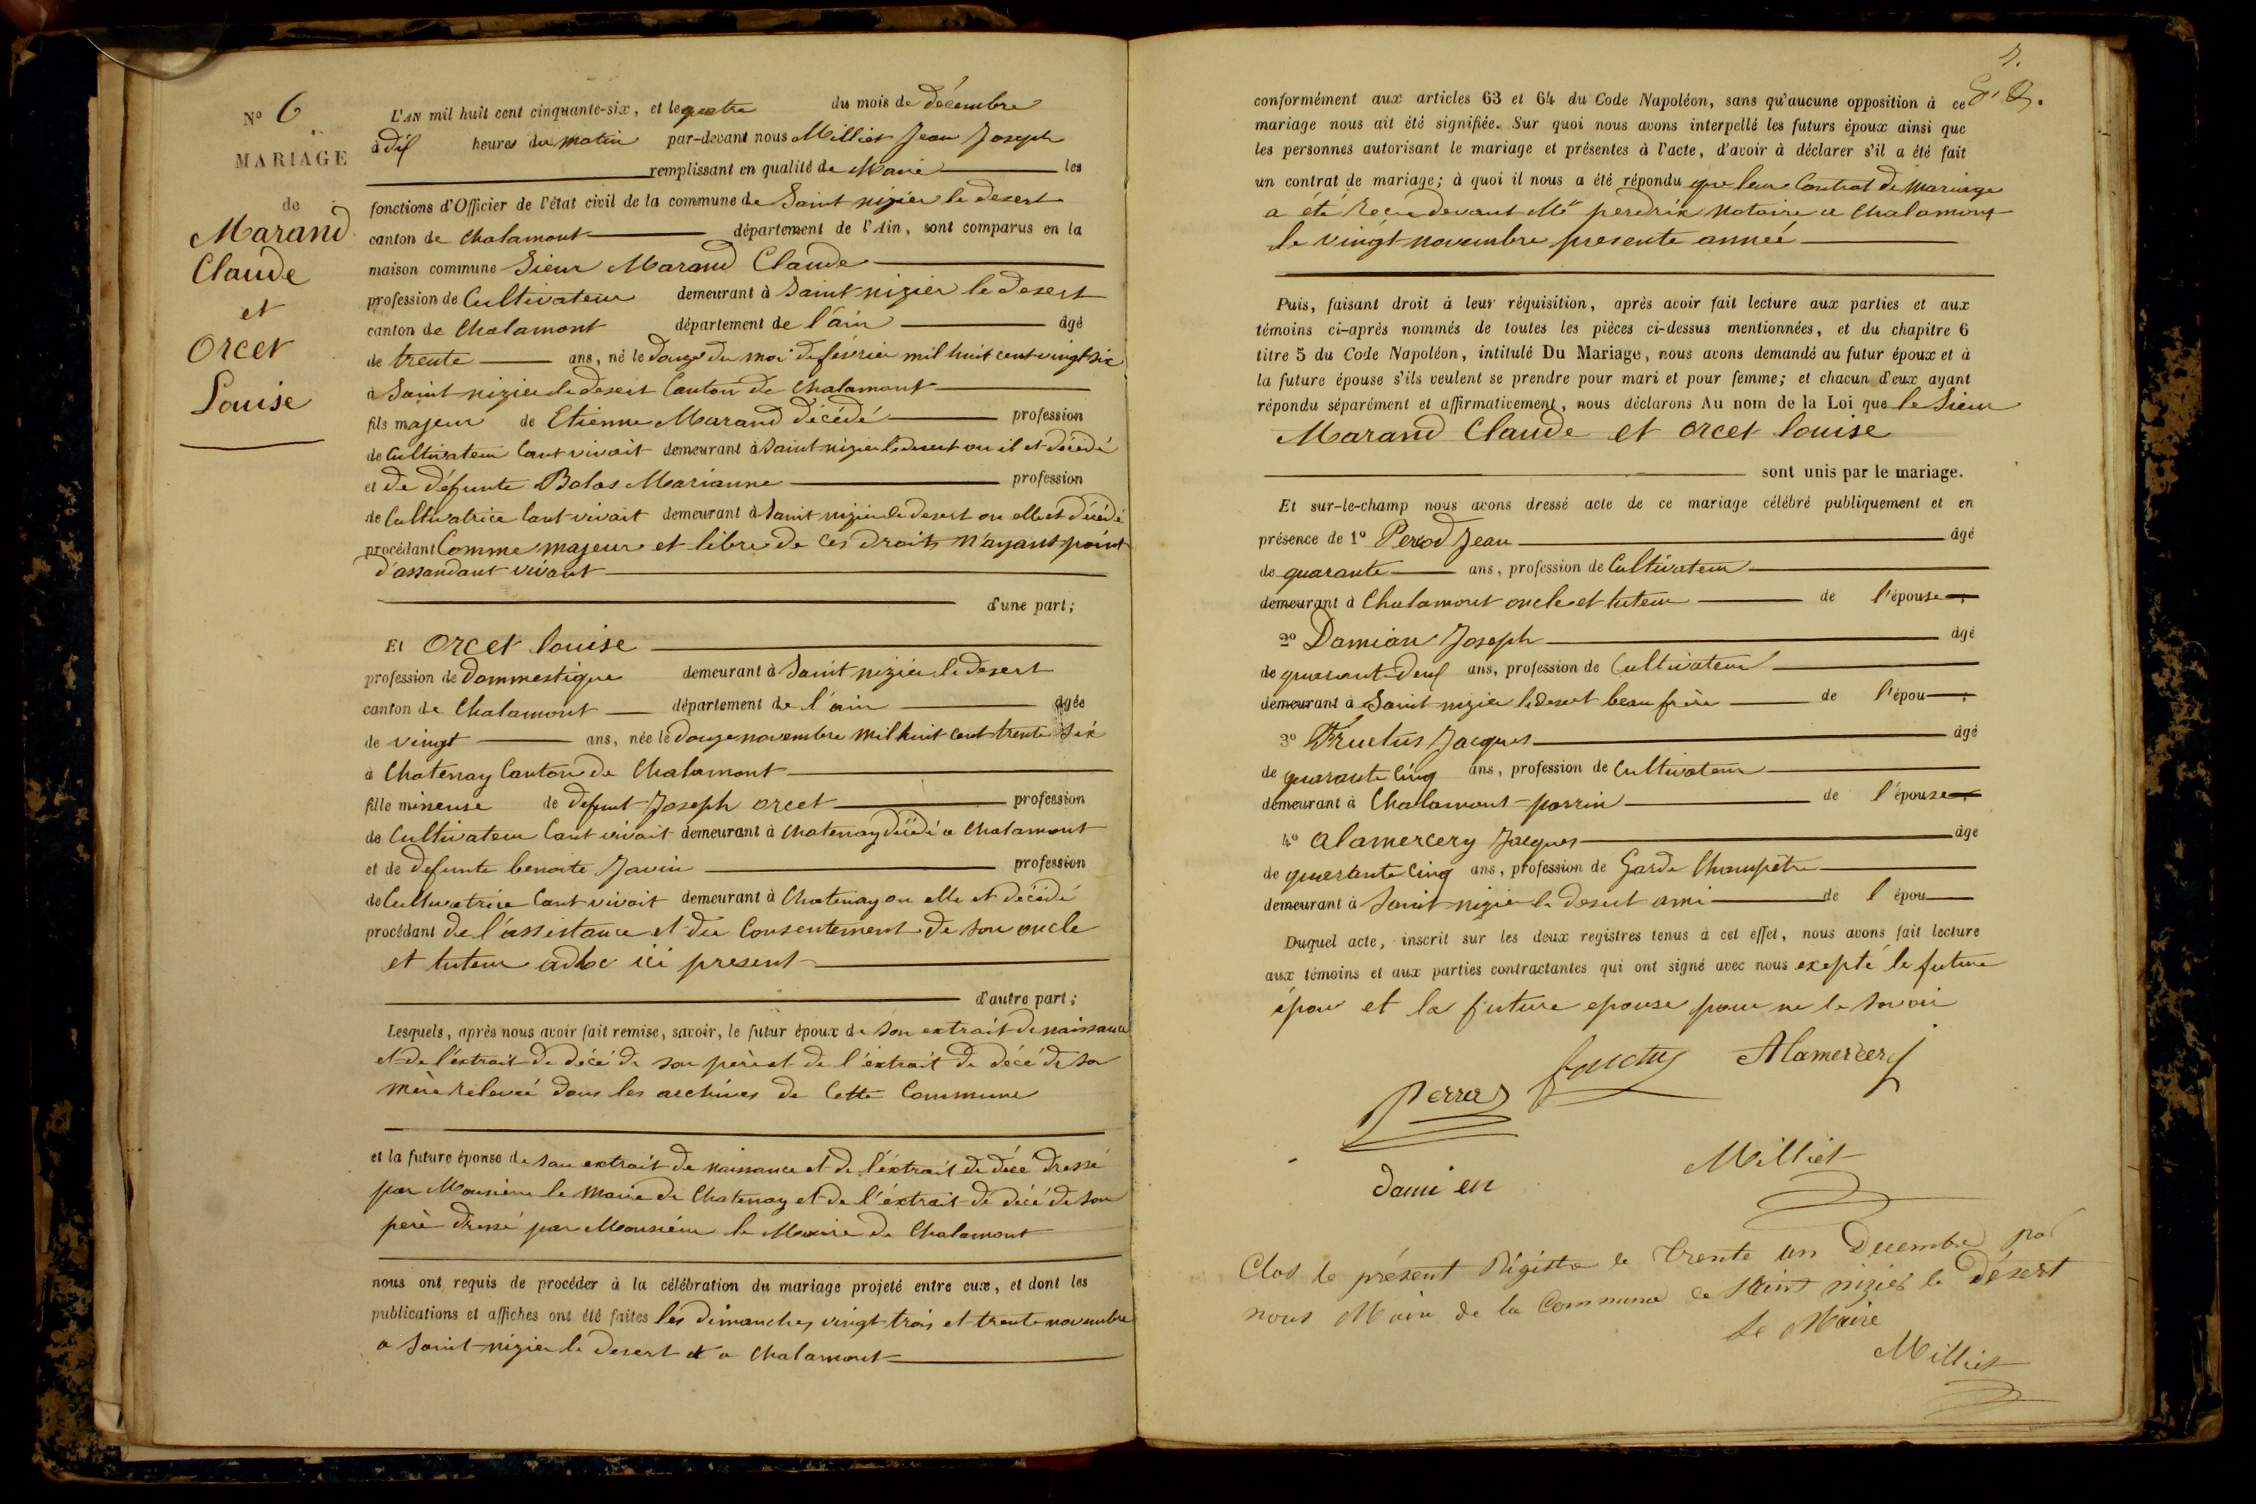 N° 6
MARIAGE
de
Marand
Claude
et
Orcet
Louise
L'AN mil huit cent cinquante-six, et le quatre du mois de décembre
à dix heures du matin par-devant nous Milliet Jean Joseph
remplissant en qualité de Maire les
fonctions d'Officier de l'état civil de la commune de Saint nizier le desert
canton de Chalamont département de l'Ain, sont comparus en la
maison commune Sieur Marand Claude
profession de Cultivateur demeurant à Saint nizier le desert
canton de Chalamont département de l'ain âgé
de trente ans, né le douze du moi de février mil huit cent vingt six
à Saint nizier le desert Canton de Chalamont
fils majeur de Etienne Marand décédé profession
de Cultivateur tant vivait demeurant à Saint nizier le desert ou il et décédé
et de défunte Bolas Marianne profession
de Cultivatrice tant vivait demeurant à Saint nizier le desert ou elle et décédé
procédant Comme majeur et libre de ces droits n'ayant point
d'assandant vivant
d'une part;
Et Orcet louise
profession de dommestique demeurant à Saint nizier le desert
canton de Chalamont département de l'ain âgée
de vingt ans, née le douze novembre mil huit cent trente six
à Chatenay Canton de Chalamont
fille mineuse de defunt Joseph orcet profession
de Cultivateur tant vivait demeurant à Chatenay décédé a Chalamont
et de defunte benoite Javin profession
de Cultivatrice tant vivait demeurant à Chatenay ou elle et décédé
procédant de l'assistance et du Consentement de son oncle
et tuteur adhc ici present
d'autre part;
Lesquels, après nous avoir fait remise, savoir, le futur époux de son extrait de naissance
et de l'extrait de décé de son père et de l'extrait de décé de sa
mère relevée dans les archives de Cette Commune
et la future épouse de son extrait de naissance et de l'éxtrait de décé dressé
par Monsieur le Maire de Chatenay et de l'éxtrait de décé de son
perè dressé par Monsieur le Maire de Chalamont
nous ont requis de procéder à la célébration du mariage projeté entre eux, et dont les
publications et affiches ont été faites les dimanches vingt trois et trente novembre
a Saint nizier le desert et a Chalamont
conformément aux articles 63 et 64 du Code Napoléon, sans qu'aucune opposition à ce
mariage nous ait été signifiée. Sur quoi nous avons interpellé les futurs époux ainsi que
les personnes autorisant le mariage et présentes à l'acte, d'avoir à déclarer s'il a été fait
un contrat de mariage; à quoi il nous a été répondu que leur Contrat de Mariage
a été reçu devant Me perdrix Notaire a Chalamont
le vingt novembre presente année
Puis, faisant droit à leur réquisition, après avoir fait lecture aux parties et aux
témoins ci-après nommés de toutes les pièces ci-dessus mentionnées, et du chapitre 6
titre 5 du Code Napoléon, intitulé Du Mariage, nous avons demandé au futur époux et à
la future épouse s'ils veulent se prendre pour mari et pour femme; et chacun d'eux ayant
répondu séparément et affirmativement, nous déclarons Au nom de la Loi que le Sieur
Marand Claude et orcet louise
sont unis par le mariage.
Et sur-le-champ nous avons dressé acte de ce mariage célébré publiquement et en
présence de 1° Jean âgé
de quarante ans, profession de Cultivateur
demeurant à Chalamont oncle et tuteur de l'épouse
2° Damian Joseph âgé
de quarant deux ans, profession de Cultivateur
demeurant à Saint nizier le desert beau frère de l'épou
3° Fructus Jacques âgé
de quarante cinq ans, profession de Cultivateur
demeurant à Chalamont parrin de l'épouse
4° alamercery Jacques âgé
de quarante cinq ans, profession de Garde Champêtre
demeurant à Saint nizier le desert ami de l'épou
Duquel acte, inscrit sur les deux registres tenus à cet effet, nous avons fait lecture
aux témoins et aux parties contractantes qui ont signé avec nous exepté le futur
épou et la future epouse pour ne le savoir
fructus Alamercery
damien Milliet
Clos le présent Régistre le trente un Decembre par
nous Maire de la Commune de Saint nizier le désert
Le Maire
Milliet